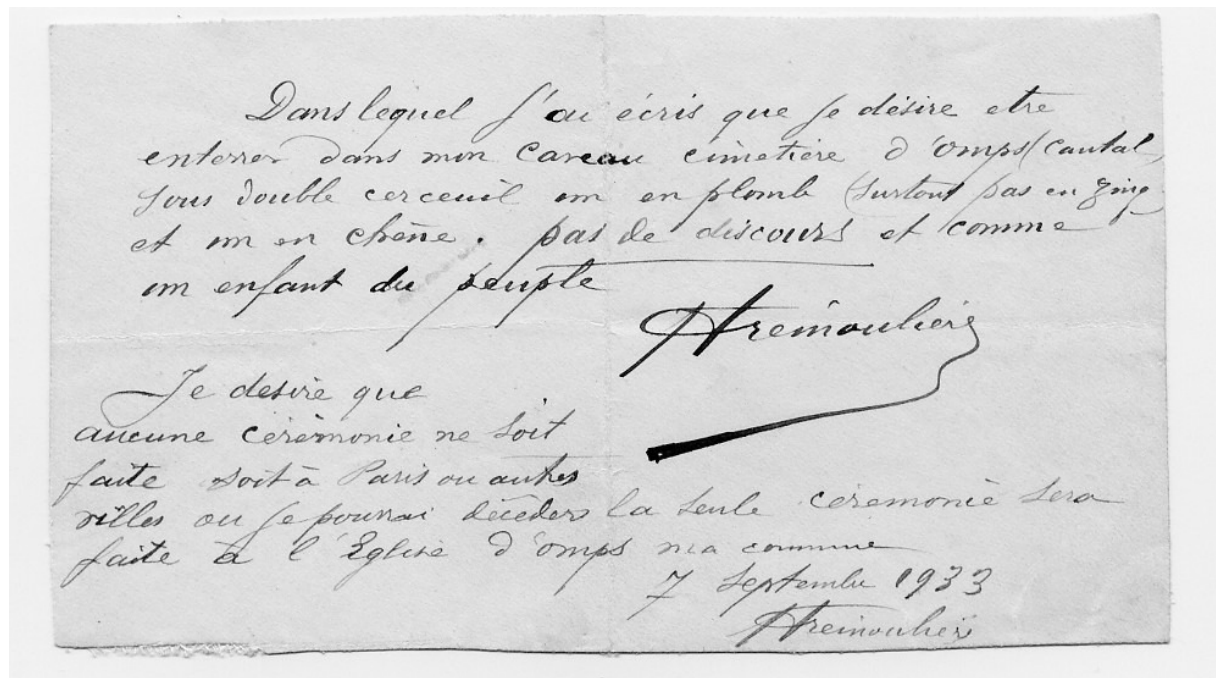 Dans lequel j'ai écris que je désire etre
enterrer dans mon Caveau cimetière d'omps (Cantal,
sous double cerceuil un en plomb (surtout pas en zing
et un en chêne. pas de discours et comme
un enfant du peuple
Htremoulière
Je desire que
aucune cérèmonie ne soit
faite soit à Paris ou autres
villes ou je pourrai décéders la seule cérémonie sera
faite à l'Eglise d'omps ma commune
7 Septembre 1933
Htremoulière